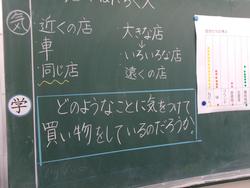 気
近くの店
車
同じ店
大きな店
↓
いろいろな店
遠くの店
学
どのようなことに気をつけて
買い物をしているのだろうか。